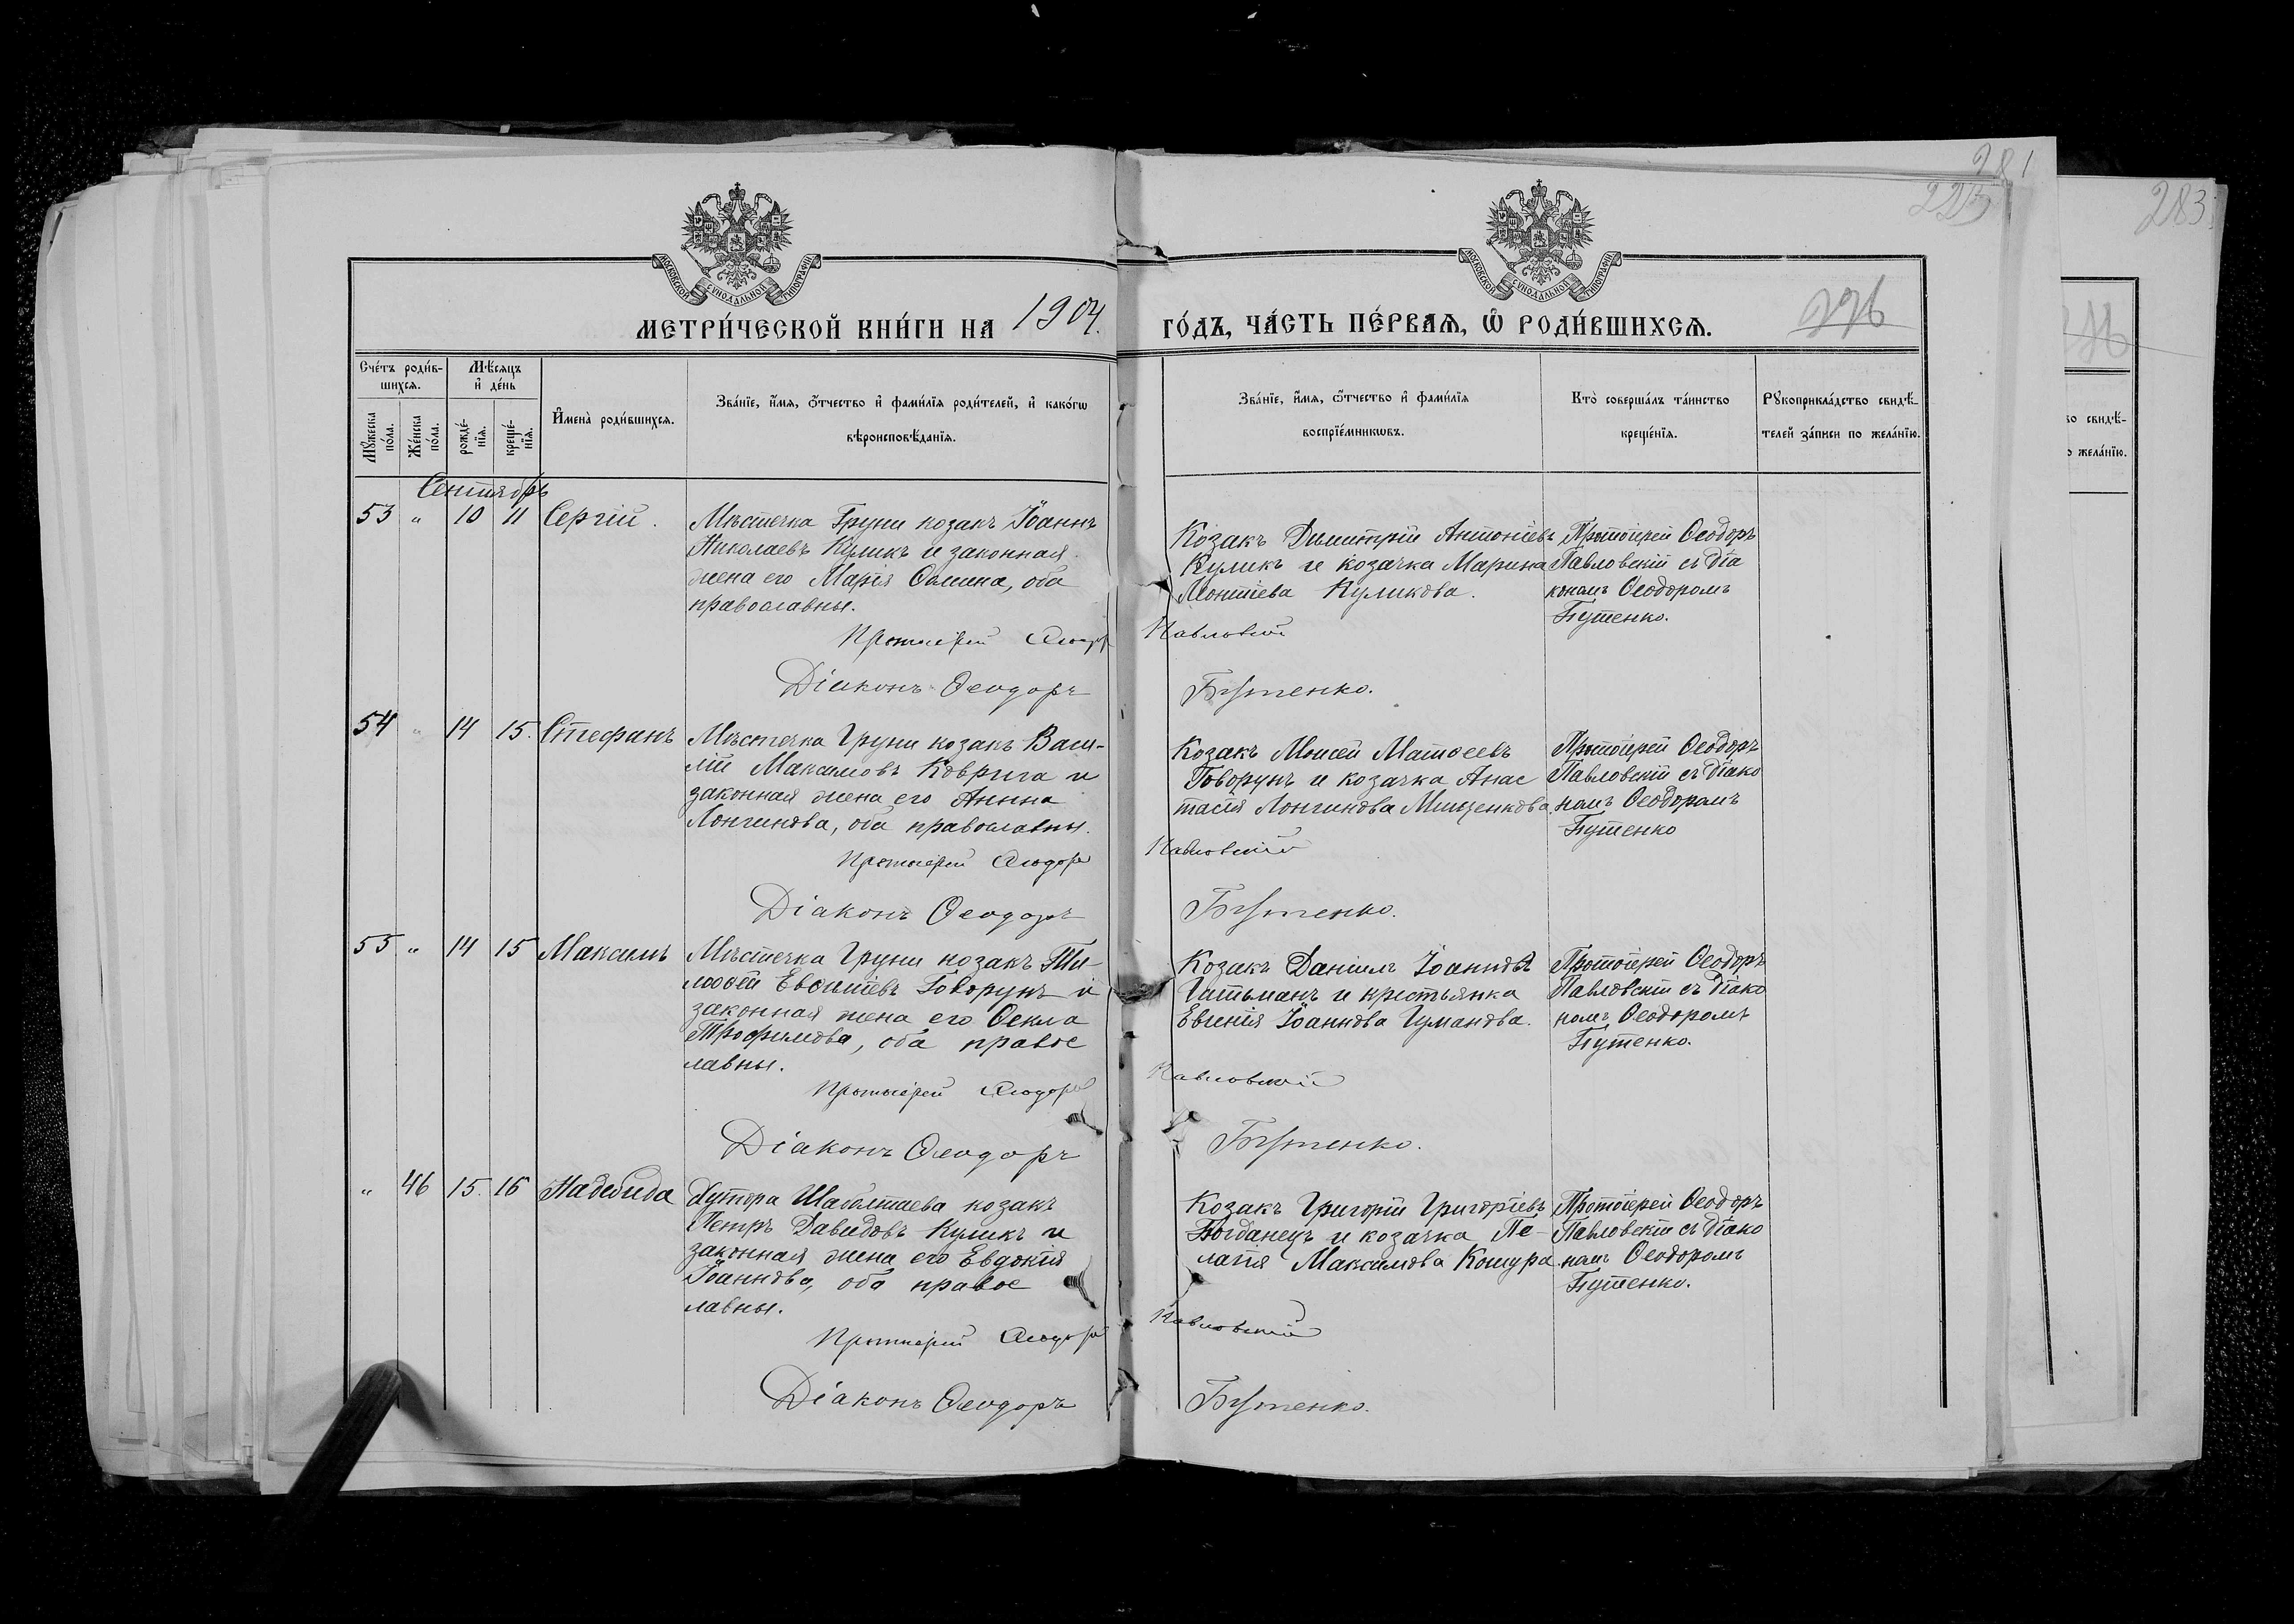 281
225
283
МОСКОВСКОЙ СУНОДАЛЬНОЙ ТИПОГРАФІИ
МОСКОВСКОЙ СУНОДАЛЬНОЙ ТИПОГРАФІИ
МЕТРИ́ЧЕСКОЙ КНИ́ГИ НА 1904. ГО́ДЪ, ЧА́СТЬ ПЕ́РВАЯ, Ѡ҆ РОДИ́ВШИХСЯ.
276
Сче́тъ роди́в-
шихся.
Мѣ́сяцъ
и҆ де́нь
Мꙋжеска по́ла.
Же́нска по́ла.
рожде́-
нїя.
креще́-
нїя.
И҆мена̀ роди́вшихся.
Зва́нїе, и҆́мя, ѻ҆́тчество и҆ фами́лїя роди́телей, и҆ како́гѡ
вѣроисповѣ́данїя.
Зва́нїе, и҆́мя, ѻ҆́тчество и҆ фами́лїя
воспрїе́мникѡвъ.
Кто̀ соверша́лъ та́инство
креще́нїя.
Рꙋкоприкла́дство свидѣ́-
телей за́писи по жела́нїю.
Сентябрь
53 " 10 11 Сергій.
Мѣстечка Груни козакъ Іоаннъ
Николаевъ Куликъ и законная
жена его Марія Ѳомина, оба
православны.
Козакъ Димитрій Антоніевъ
Куликъ и козачка Марина
Леонтіева Куликова.
Протоіерей Ѳеодоръ
Павловскій съ діа
кономъ Ѳеодоромъ
Бутенко.
Протоіерей Ѳеодоръ Павловскій
Діаконъ Ѳеодоръ Бутенко.
54 " 14 15. Стефанъ
Мѣстечка Груни козакъ Васи-
лій Максимовъ Коврига и
законная жена его Анна
Лонгинова, оба православны.
Козакъ Моисей Матѳеевъ
Говорунъ и козачка Анас
тасія Лонгинова Мищенкова.
Протоіерей Ѳеодоръ
Павловскій съ діако
номъ Ѳеодоромъ
Бутенко
Протоіерей Ѳеодоръ Павловскій
Діаконъ Ѳеодоръ Бутенко.
55 " 14 15 Максимъ
Мѣстечка Груни козакъ Ти
моѳей Евсигіевъ Говорунъ и
законная жена его Ѳекла
Трофимова, оба правос
лавны.
Козакъ Даніилъ Іоанновъ
Гатьманъ и крестьянка
Евгенія Іоаннова Гуманова.
Протоіерей Ѳеодоръ
Павловскій съ діако
номъ Ѳеодоромъ
Бутенко.
Протоіерей Ѳеодоръ Павловскій
Діаконъ Ѳеодоръ Бутенко.
" 46 15. 16 Надежда
Хутора Шаболтаева козакъ
Петръ Давидовъ Куликъ и
законная жена его Евдокія
Іоаннова, оба правос
лавны.
Козакъ Григорій Григоріевъ
Богданецъ и козачка Пе-
лагія Максимова Кошура.
Протоіерей Ѳеодоръ
Павловскій съ діако
номъ Ѳеодоромъ
Бутенко.
Протоіерей Ѳеодоръ Павловскій
Діаконъ Ѳеодоръ Бутенко.